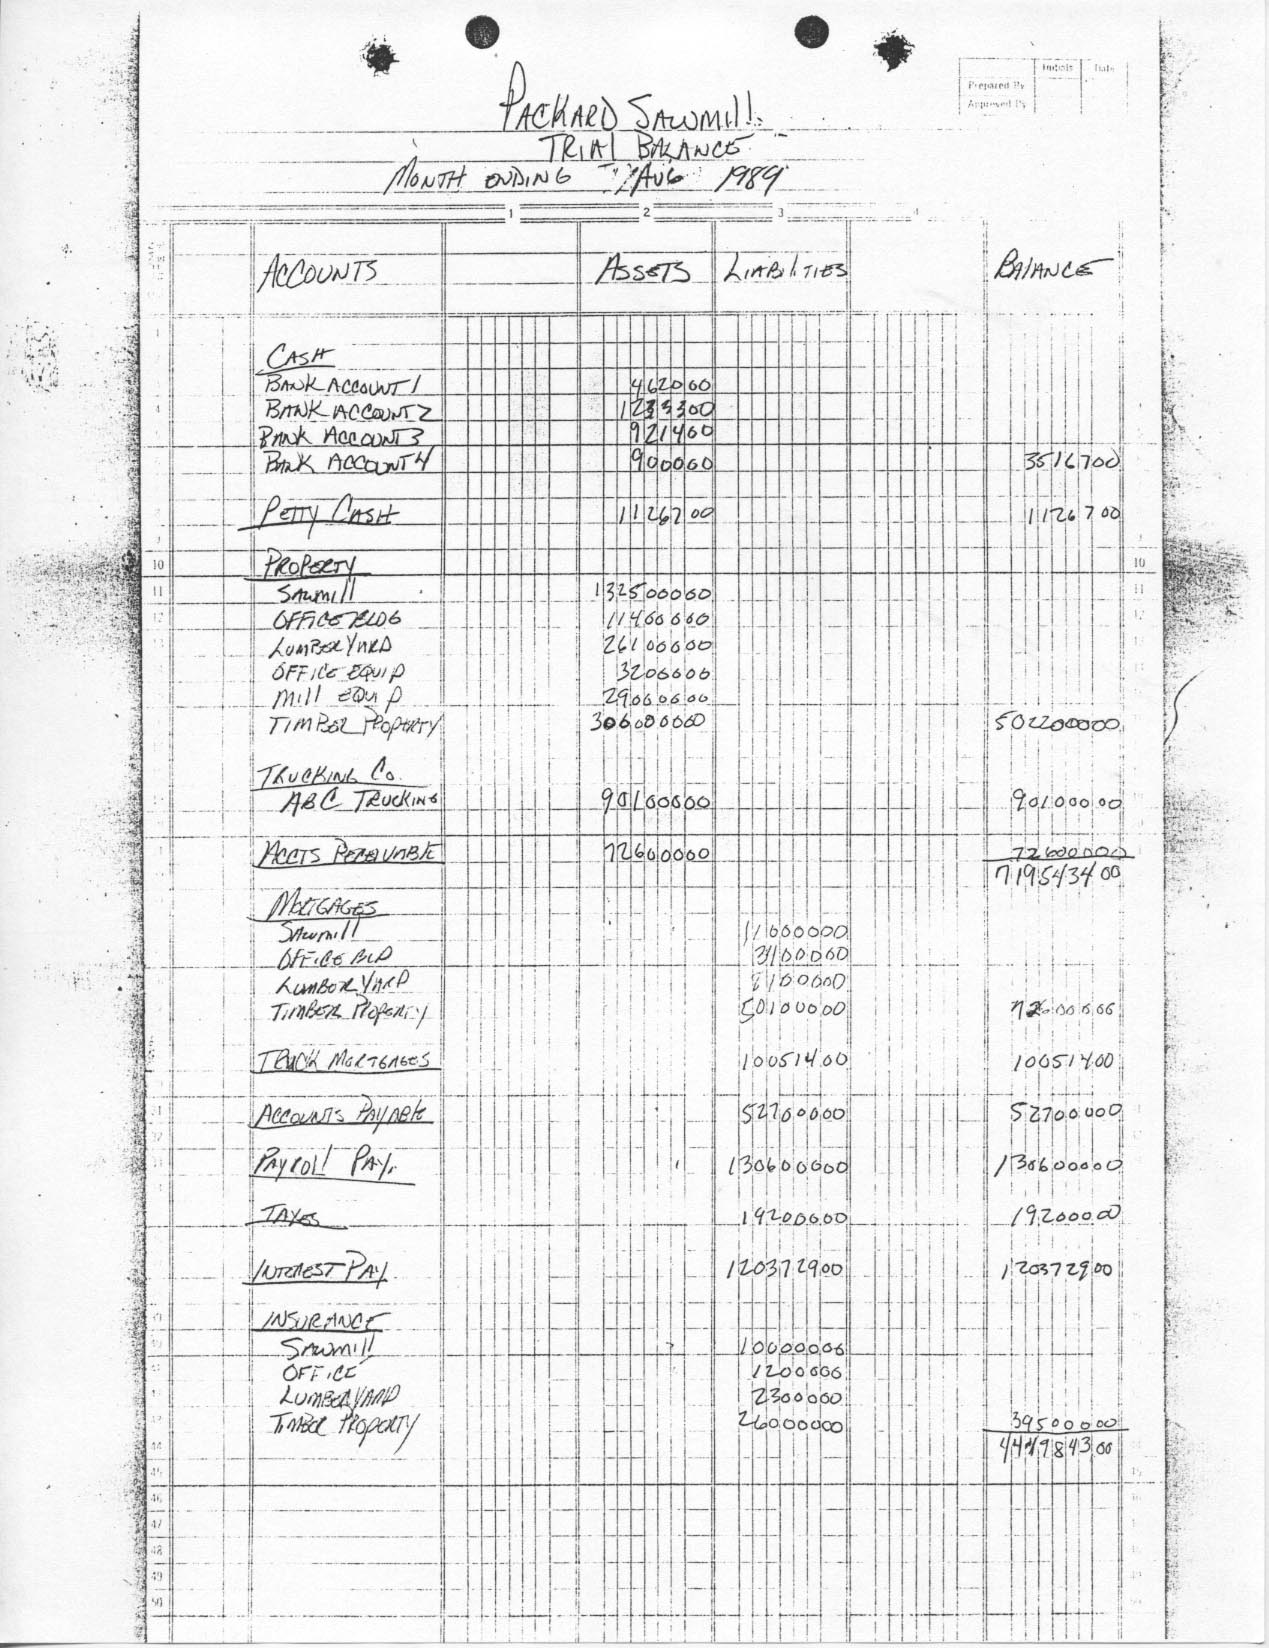 Initials Date
Prepared By
Approved By
PACKARD SAWMILL
TRIAL BALANCE
MONTH ENDING AUG 1989
1 2 3 4
ACCOUNTS ASSETS LIABILITIES BALANCE
CASH
BANK ACCOUNT 1 462000
BANK ACCOUNT 2 1233300
BANK ACCOUNT 3 921400
BANK ACCOUNT 4 900000 3516700
PETTY CASH 1126700 1126700
10 PROPERTY 10
11 SAWMILL 132500000 11
12 OFFICE BLDG 11400000
LUMBER YARD 26100000
OFFICE EQUIP 3200000
MILL EQUIP 29000000
TIMBER PROPERTY 306000000 502200000
TRUCKING CO.
ABC TRUCKING 90100000 90100000
ACCTS RECEIVABLE 72600000 72600000
719543400
MORTGAGES
SAWMILL 11000000
OFFICE BLD 3100000
LUMBER YARD 8100000
TIMBER PROPERTY 50100000 72600000
TRUCK MORTGAGES 10051400 10051400
ACCOUNTS PAYABLE 52700000 52700000
PAYROLL PAY. 130600000 130600000
TAXES 19200000 19200000
INTEREST PAY 120372900 120372900
INSURANCE
SAWMILL 10000000
OFFICE 1200000
LUMBERYARD 2300000
TIMBER PROPERTY 26000000 39500000
44 444984300
45
46
47
48
49
50